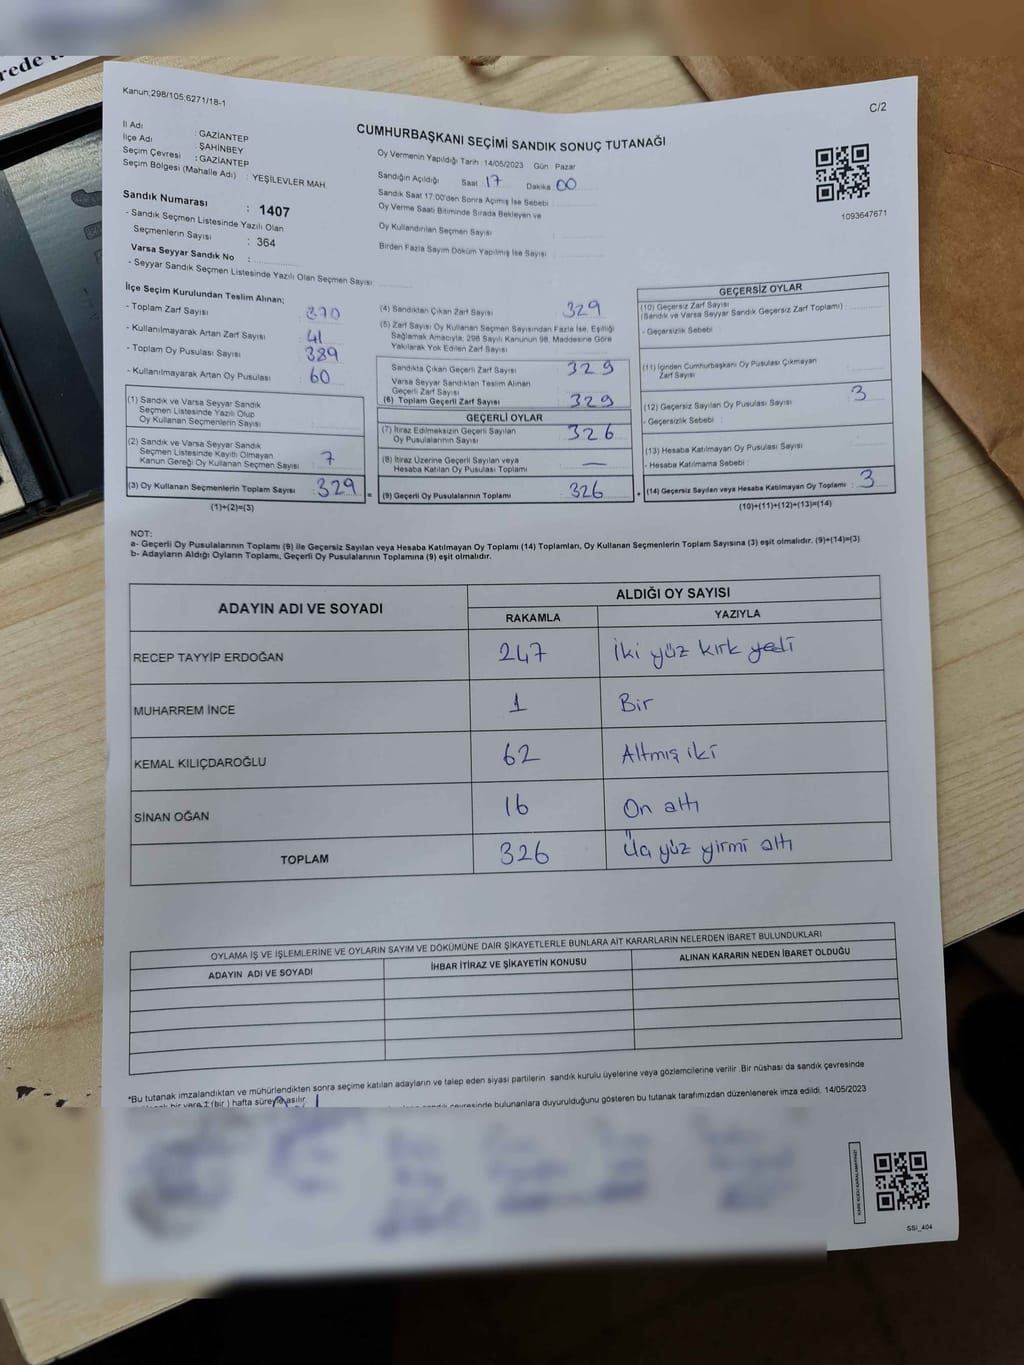 rede
Kanun;298/105;6271/18-1
C/2
CUMHURBAŞKANI SEÇİMİ SANDIK SONUÇ TUTANAĞI
İl Adı : GAZİANTEP
İlçe Adı : ŞAHİNBEY
Seçim Çevresi : GAZİANTEP
Seçim Bölgesi (Mahalle Adı) : YEŞİLEVLER MAH.
Sandık Numarası : 1407
- Sandık Seçmen Listesinde Yazılı Olan
Seçmenlerin Sayısı : 364
Varsa Seyyar Sandık No :
- Seyyar Sandık Seçmen Listesinde Yazılı Olan Seçmen Sayısı :
Oy Vermenin Yapıldığı Tarih :14/05/2023 Gün : Pazar
Sandığın Açıldığı Saat 17 Dakika : 00
Sandık Saat 17:00'den Sonra Açımış İse Sebebi :
Oy Verme Saati Bitiminde Sırada Bekleyen ve
Oy Kullandırılan Seçmen Sayısı :
Birden Fazla Sayım Döküm Yapılmış İse Sayısı :
1093647671
İlçe Seçim Kurulundan Teslim Alınan;
- Toplam Zarf Sayısı : 370
- Kullanılmayarak Artan Zarf Sayısı : 41
- Toplam Oy Pusulası Sayısı : 389
- Kullanılmayarak Artan Oy Pusulası : 60
(1) Sandık ve Varsa Seyyar Sandık
Seçmen Listesinde Yazılı Olup
Oy Kullanan Seçmenlerin Sayısı :
(2) Sandık ve Varsa Seyyar Sandık
Seçmen Listesinde Kayıtlı Olmayan
Kanun Gereği Oy Kullanan Seçmen Sayısı : 7
(3) Oy Kullanan Seçmenlerin Toplam Sayısı : 329 =
(1)+(2)=(3)
(4) Sandıktan Çıkan Zarf Sayısı : 329
(5) Zarf Sayısı Oy Kullanan Seçmen Sayısından Fazla İse, Eşitliği
Sağlamak Amacıyla; 298 Sayılı Kanunun 98. Maddesine Göre
Yakılarak Yok Edilen Zarf Sayısı :
Sandıkta Çıkan Geçerli Zarf Sayısı : 329
Varsa Seyyar Sandıktan Teslim Alınan
Geçerli Zarf Sayısı :
(6) Toplam Geçerli Zarf Sayısı : 329
GEÇERLİ OYLAR
(7) İtiraz Edilmeksizin Geçerli Sayılan
Oy Pusulalarının Sayısı : 326
(8) İtiraz Üzerine Geçerli Sayılan veya
Hesaba Katılan Oy Pusulası Toplamı : —
(9) Geçerli Oy Pusulalarının Toplamı : 326 +
GEÇERSİZ OYLAR
(10) Geçersiz Zarf Sayısı
(Sandık ve Varsa Seyyar Sandık Geçersiz Zarf Toplamı) :
- Geçersizlik Sebebi :
(11) İçinden Cumhurbaşkanı Oy Pusulası Çıkmayan
Zarf Sayısı :
(12) Geçersiz Sayılan Oy Pusulası Sayısı : 3
- Geçersizlik Sebebi :
(13) Hesaba Katılmayan Oy Pusulası Sayısı :
- Hesaba Katılmama Sebebi :
(14) Geçersiz Sayılan veya Hesaba Katılmayan Oy Toplamı : 3
(10)+(11)+(12)+(13)=(14)
NOT:
a- Geçerli Oy Pusulalarının Toplamı (9) ile Geçersiz Sayılan veya Hesaba Katılmayan Oy Toplamı (14) Toplamları, Oy Kullanan Seçmenlerin Toplam Sayısına (3) eşit olmalıdır. (9)+(14)=(3)
b- Adayların Aldığı Oyların Toplamı, Geçerli Oy Pusulalarının Toplamına (9) eşit olmalıdır.
ADAYIN ADI VE SOYADI
ALDIĞI OY SAYISI
RAKAMLA YAZIYLA
RECEP TAYYİP ERDOĞAN 247 İki yüz kırk yedi
MUHARREM İNCE 1 Bir
KEMAL KILIÇDAROĞLU 62 Altmış iki
SİNAN OĞAN 16 On altı
TOPLAM 326 Üç yüz yirmi altı
OYLAMA İŞ VE İŞLEMLERİNE VE OYLARIN SAYIM VE DÖKÜMÜNE DAİR ŞİKAYETLERLE BUNLARA AİT KARARLARIN NELERDEN İBARET BULUNDUKLARI
ADAYIN ADI VE SOYADI İHBAR İTİRAZ VE ŞİKAYETİN KONUSU ALINAN KARARIN NEDEN İBARET OLDUĞU
*Bu tutanak imzalandıktan ve mühürlendikten sonra seçime katılan adayların ve talep eden siyasi partilerin sandık kurulu üyelerine veya gözlemcilerine verilir. Bir nüshası da sandık çevresinde
(bir ) hafta süreyle asılır.
çevresinde bulunanlara duyurulduğunu gösteren bu tutanak tarafımızdan düzenlenerek imza edildi. 14/05/2023
SSI_404